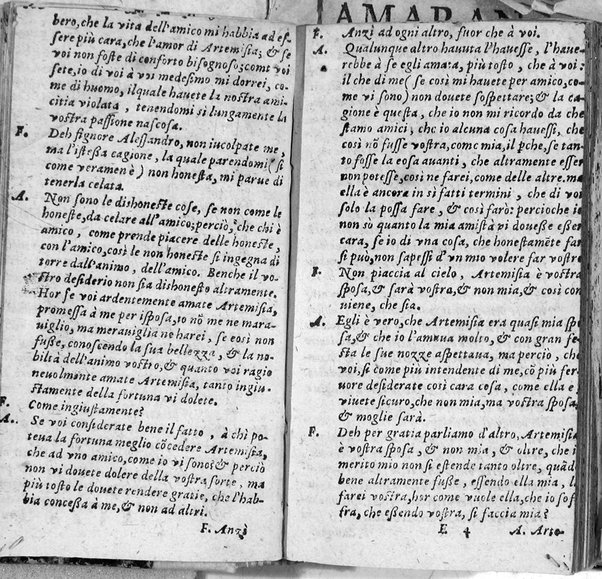 bero, che la vita dell'amico mi habbia ad es
sere più cara, che l'amor di Artemisia; & se
voi non foste di conforto bisognoso; come voi
sete, io di voi à voi medesimo mi dorrei, co-
me di huomo, ilquale hauete la nostra ami
citia violata, tenendomi sì lungamente la
vostra passione nascosa.
F. Deh signore Alessandro, non incolpate me,
ma l'istessa cagione, la quale parendomi (sì
come veramen è) non honesta, mi parue di
tenerla celata.
A. Non sono le dishoneste cose, se non come le
honeste, da celare all'amico; però, che chi è
amico, come prende piacere delle honeste,
con l'amico, così le non honeste si ingegna di
torre dall'animo, dell'amico. Benche il vo-
stro desiderio non sia dishonesto altramente.
Hor se voi ardentemente amate Artemisia,
promessa à me per isposa, io nō me ne mara-
uiglio, ma merauiglia ne harei, se così non
fusse, conoscendo la sua bellezza, & la no-
biltà dell'animo vostro, & quanto voi ragio
neuolmente amate Artemisia, tanto ingiu-
stamente della fortuna vi dolete.
F. Come ingiustamente?
A. Se voi considerate bene il fatto, à chi po-
teua la fortuna meglio cōcedere Artemisia,
che ad vno amico, come io vi sono? & perciò
non vi douete dolere della vostra sorte, ma
più tosto le douete rendere gratie, che l'hab-
bia concessa à me, & non ad altri.
F. Anzi
AMARAN
F. Anzi ad ogni altro, fuor che à voi.
A. Qualunque altro hauuta l'hauesse, l'haue-
rebbe à se egli amata, più tosto, che à voi:
il che di me (se così mi hauete per amico, co-
me vi sono) non douete sospettare; & la ca-
gione è questa, che io non mi ricordo da che
siamo amici, che io alcuna cosa hauessi, che
così nō fusse vostra, come mia, il pche, se tan-
to fosse la cosa auanti, che altramente esser
non potesse, così ne farei, come delle altre. ma
ella è ancora in sì fatti termini, che di voi
solo la possa fare, & così farò: percioche io
non sò quanto la mia amistà vi douesse esser
cara, se io di vna cosa, che honestamēte far
si può, non sapessi d'vn mio volere far vostro
F. Non piaccia al cielo, Artemisia è vostra
sposa, & sarà vostra, & non mia, & così con
uiene, che sia.
A. Egli è vero, che Artemisia era quasi mia spo
sa, & che io l'amaua molto, & con gran fe-
sta le sue nozze aspettaua, ma percio, che
voi, sì come più intendente di me, cō più fer
uore desiderate così cara cosa, come ella è
viuete sicuro, che non mia, ma vostra sposa,
& moglie sarà.
F. Deh per gratia parliamo d'altro, Artemisia
è vostra sposa, & non mia, & oltre, che il
merito mio non si estende tanto oltre, quādo
bene altramente fusse, essendo ella mia, la
farei vostra, hor come vuole ella, che io sof-
fra, che essendo vostra, si faccia mia?
E 4 A. Arte-